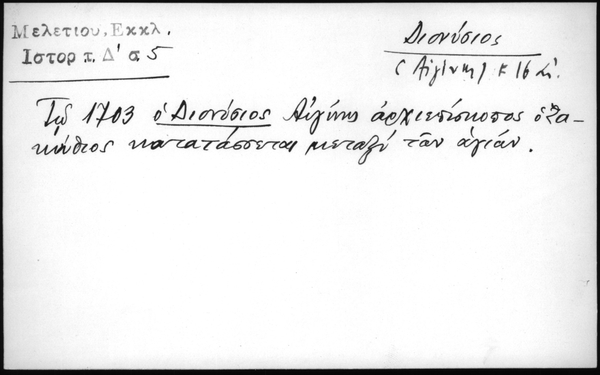 Μελετίου, Εκκλ.
Ιστορ τ. Δ' σ 5
Διονύσιος
(Αἰγίνης)
Τῷ 1703 ὁ Διονύσιος Αἰγίνης ἀρχιεπίσκοπος ὁ Ζα-
κύνθιος κατατάσσεται μεταξύ τῶν ἁγίων.